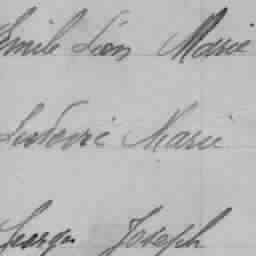 Emile Léon Marie
Ludovic Marie
Georges Joseph